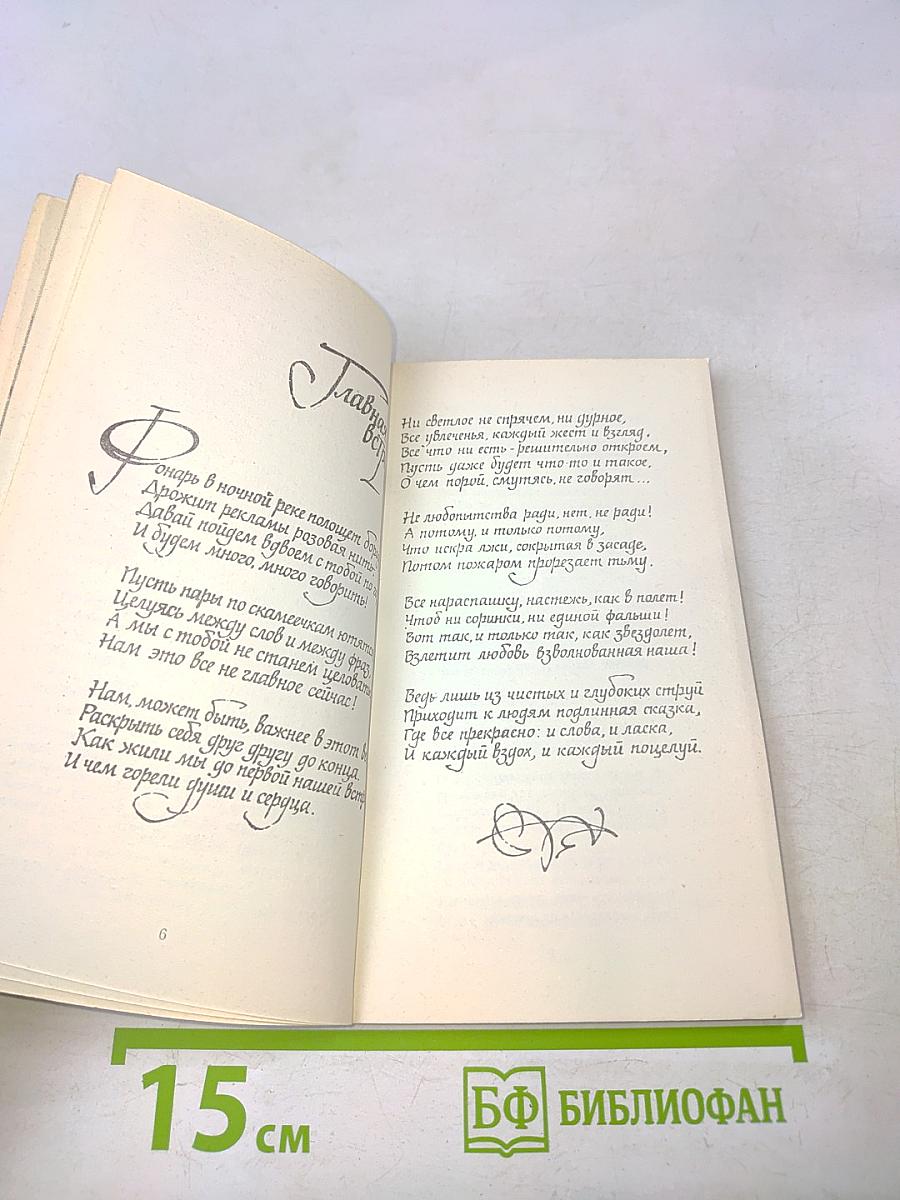 Главная
Фонарь в ночной реке полощет
Дрожит рекламы розовая нить.
Давай пойдем вдвоем с тобой по
И будем много, много говорить!
Пусть пары по скамеечкам ютятся
Целуясь между слов и между фраз,
А мы с тобой не станем
Нам это все не главное сейчас!
Нам, может быть, важнее в этот
Раскрыть себя друг другу до конца.
Как жили мы до первой нашей
И чем горели души и сердца.
6
Ни светлое не спрячем, ни дурное,
Все увлеченья, каждый жест и взгляд,
Все что ни есть - решительно откроем,
Пусть даже будет что-то и такое,
О чем порой, смутясь, не говорят...
Не любопытства ради, нет, не ради!
А потому, и только потому,
Что искра лжи, сокрытая в засаде,
Потом пожаром прорезает тьму.
Все нараспашку, настежь, как в полет!
Чтоб ни соринки, ни единой фальши!
Вот так, и только так, как звездолет,
Взлетит любовь взволнованная наша!
Ведь лишь из чистых и глубоких струй
Приходит к людям подлинная сказка,
Где все прекрасно: и слова, и ласка,
И каждый вздох, и каждый поцелуй.
15 см
БФ БИБЛИОФАН